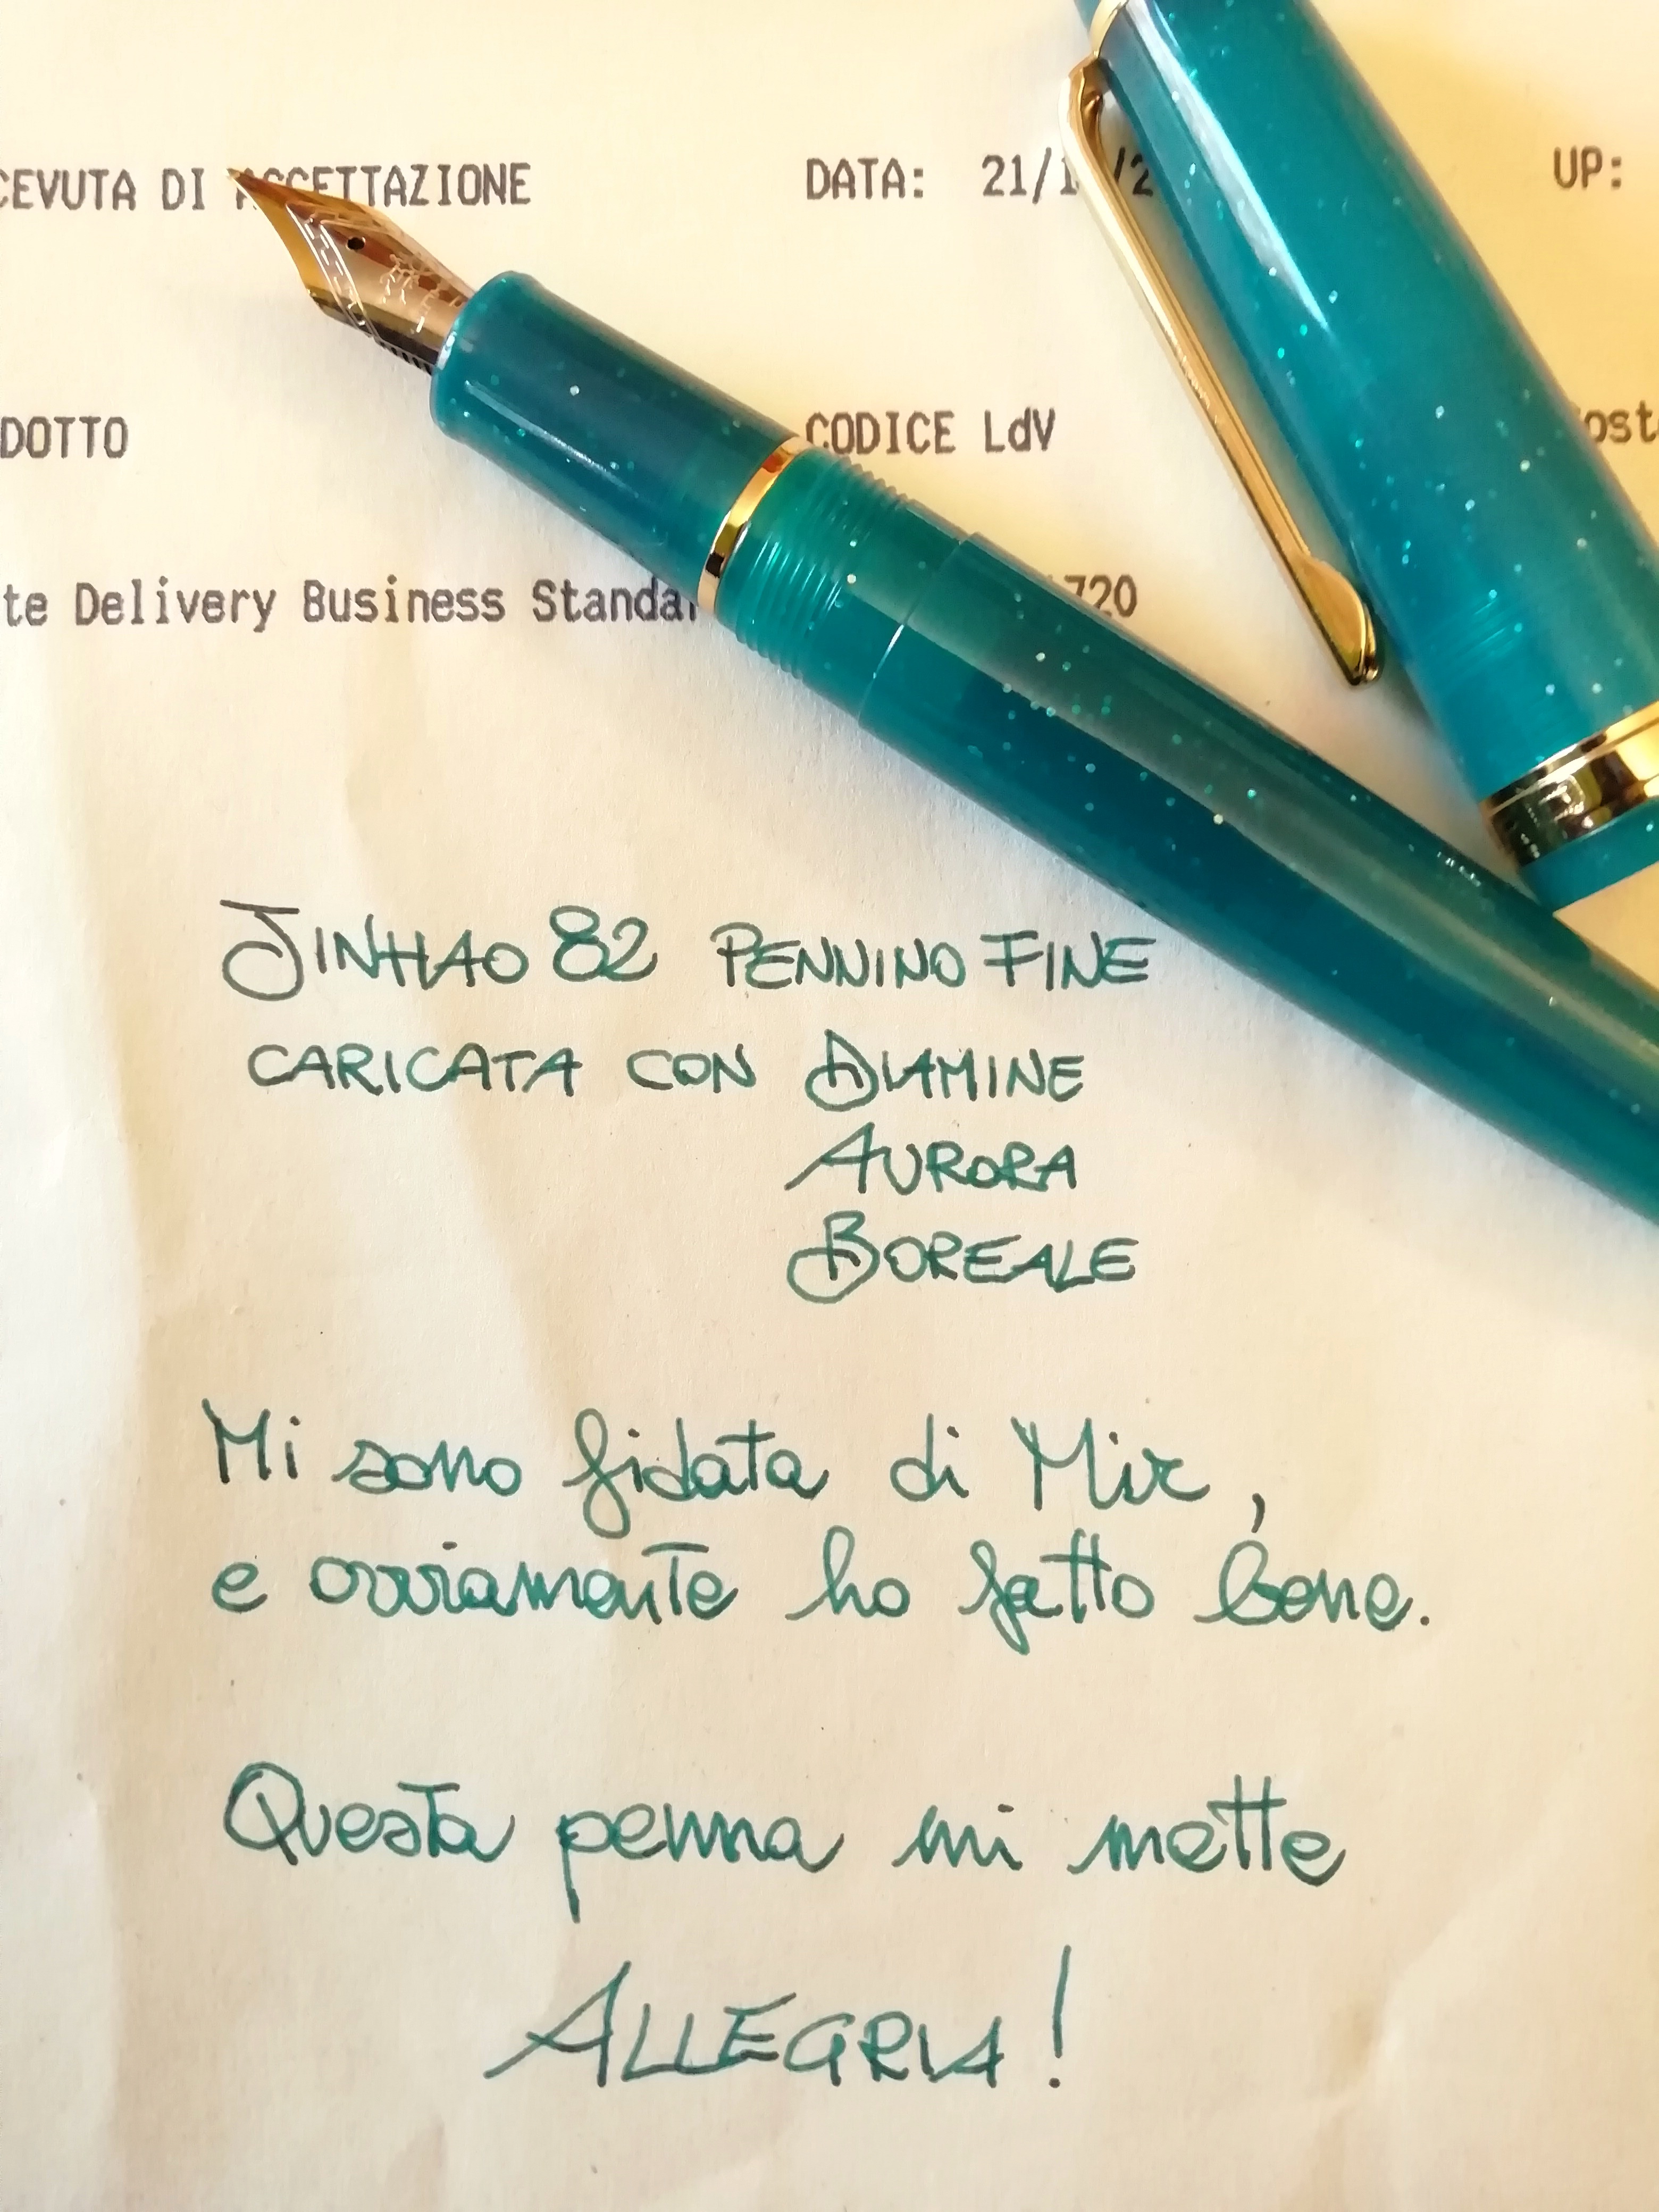 CEVUTA DI ACCETTAZIONE DATA: 21/1 /2 UP:
DOTTO CODICE LdV ost
te Delivery Business Standar 720
JINHAO 82 PENNINO FINE
CARICATA CON DIAMINE
AURORA
BOREALE
Mi sono fidata di Mir,
e ovviamente ho fatto bene.
Questa penna mi mette
ALLEGRIA!